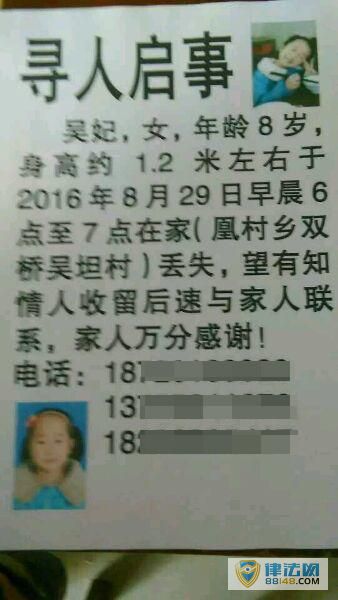 寻人启事
吴妃，女，年龄8岁，
身高约 1.2 米左右于
2016年8月29日早晨6
点至7点在家(凰村乡双
桥吴坦村)丢失，望有知
情人收留后速与家人联
系，家人万分感谢！
电话：187
137
182
律法网
88148.com